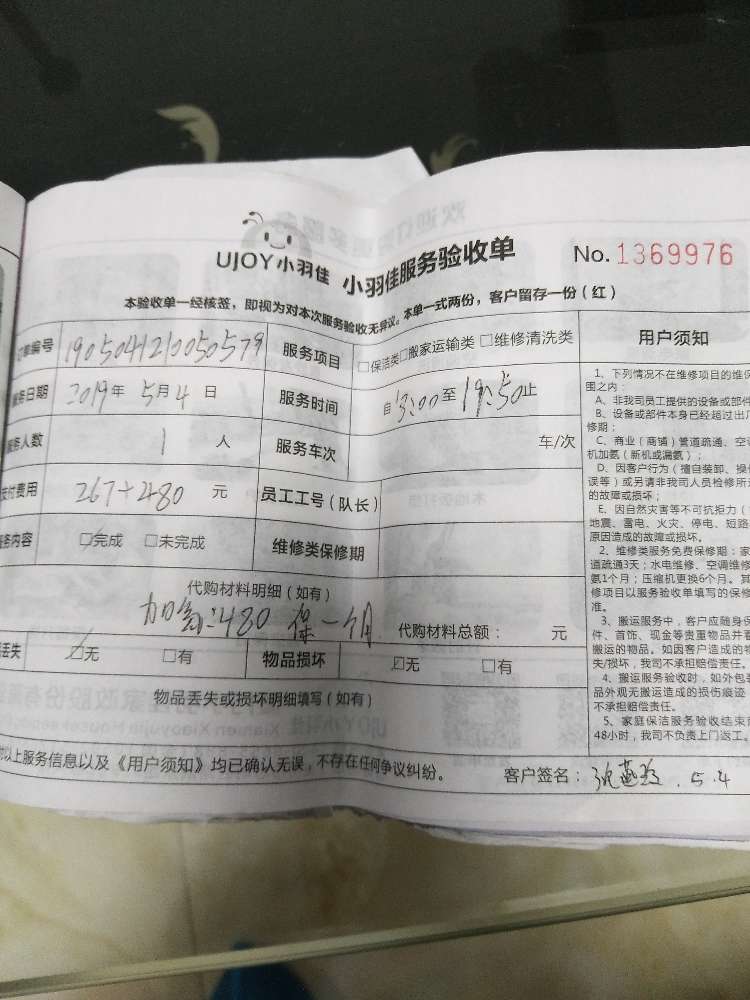 UJOY小羽佳 小羽佳服务验收单 No. 1369976
本验收单一经核签，即视为对本次服务验收无异议。本单一式两份，客户留存一份（红）
订单编号 1905041210050579 服务项目 □保洁类□搬家运输类 □维修清洗类
服务日期 2019年 5月4日 服务时间 自 13:00 至 19:50 止
服务人数 1 人 服务车次 车/次
支付费用 267+480 元 员工工号（队长）
服务内容 □完成 □未完成 维修类保修期
代购材料明细（如有）
加氟:480 保一个月 代购材料总额： 元
丢失 □无 □有 物品损坏 □无 □有
物品丢失或损坏明细填写（如有）
以上服务信息以及《用户须知》均已确认无误，不存在任何争议纠纷。 客户签名： 5.4
用户须知
1、下列情况不在维修项目的维保
围之内：
A、非我司员工提供的设备或部件
B、设备或部件本身已经超过出厂
修期；
C、商业（商铺）管道疏通、空
机加氨（新机或漏氨）；
D、因客户行为（擅自装卸、操
误等）或另请非我司人员检修所
的故障或损坏；
E、因自然灾害等不可抗拒力（
地震、雷电、火灾、停电、短路
原因造成的故障或损坏。
2、维修类服务免费保修期：家
道疏通3天；水电维修、空调维修
氨1个月；压缩机更换6个月。其
修项目以服务验收单填写的保修
准。
3、搬运服务中，客户应随身保
件、首饰、现金等贵重物品并看
搬运的物品。如因客户造成的物
失/损坏，我司不承担赔偿责任。
4、搬运服务验收时，如外包装
品外观无搬运造成的损伤痕迹
不承担赔偿责任。
5、家庭保洁服务验收结束
48小时，我司不负责上门返工。